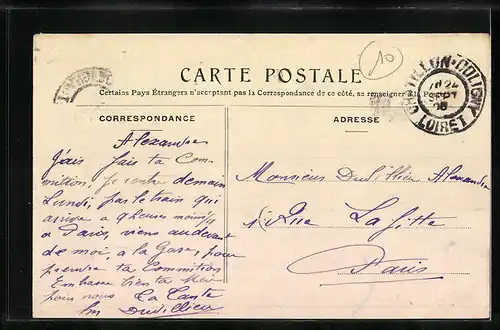 10
CARTE POSTALE
Certains Pays Étrangers n'acceptent pas la Correspondance de ce côté, se renseigner à la Poste
CHATILLON-COLIGNY
24
SEPT
LOIRET
CORRESPONDANCE
Alexandre
J'ais fais ta Com
mition, je rentre demain
Lundi, par le train qui
arrive a 9 heures moins
a Paris, viens au devant
de moi, a la Gare, pour
prendre ta Commition
Embrasse bien ta
pour nous La Tante
Duvillier
ADRESSE
Monsieur Duvillier Alexandre
1 Rue Lafitte
Paris